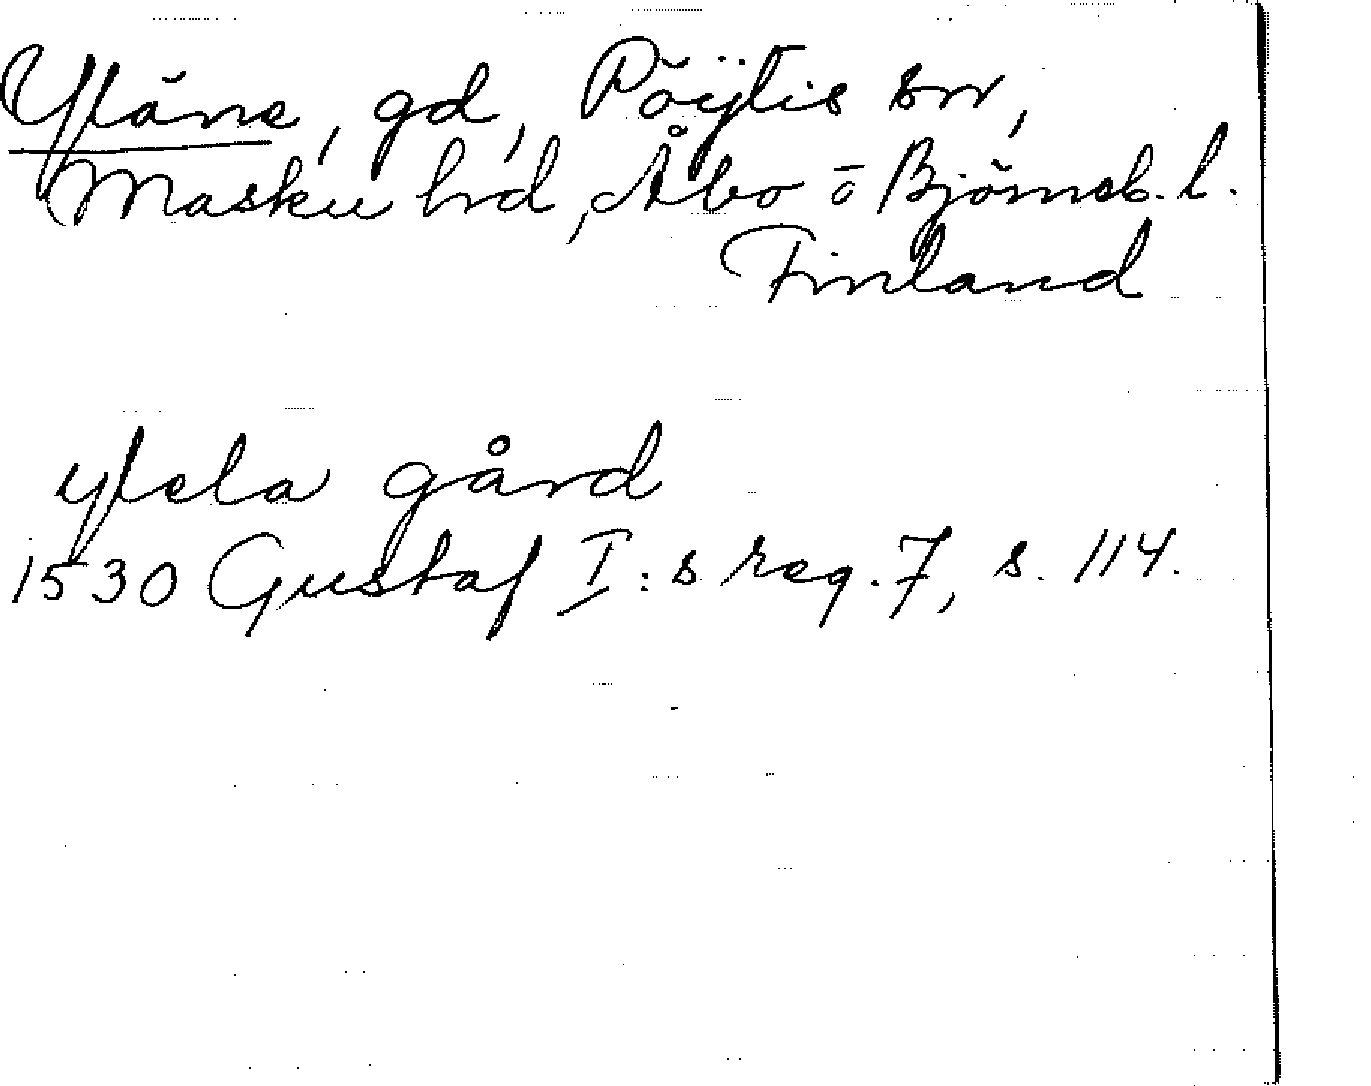 Yläne, gd, Pöÿtis sn,
Masku hd, Åbo o Björneb. l.
Finland
Ylela gård
1530 Gustaf I:s reg. 7, s. 114.